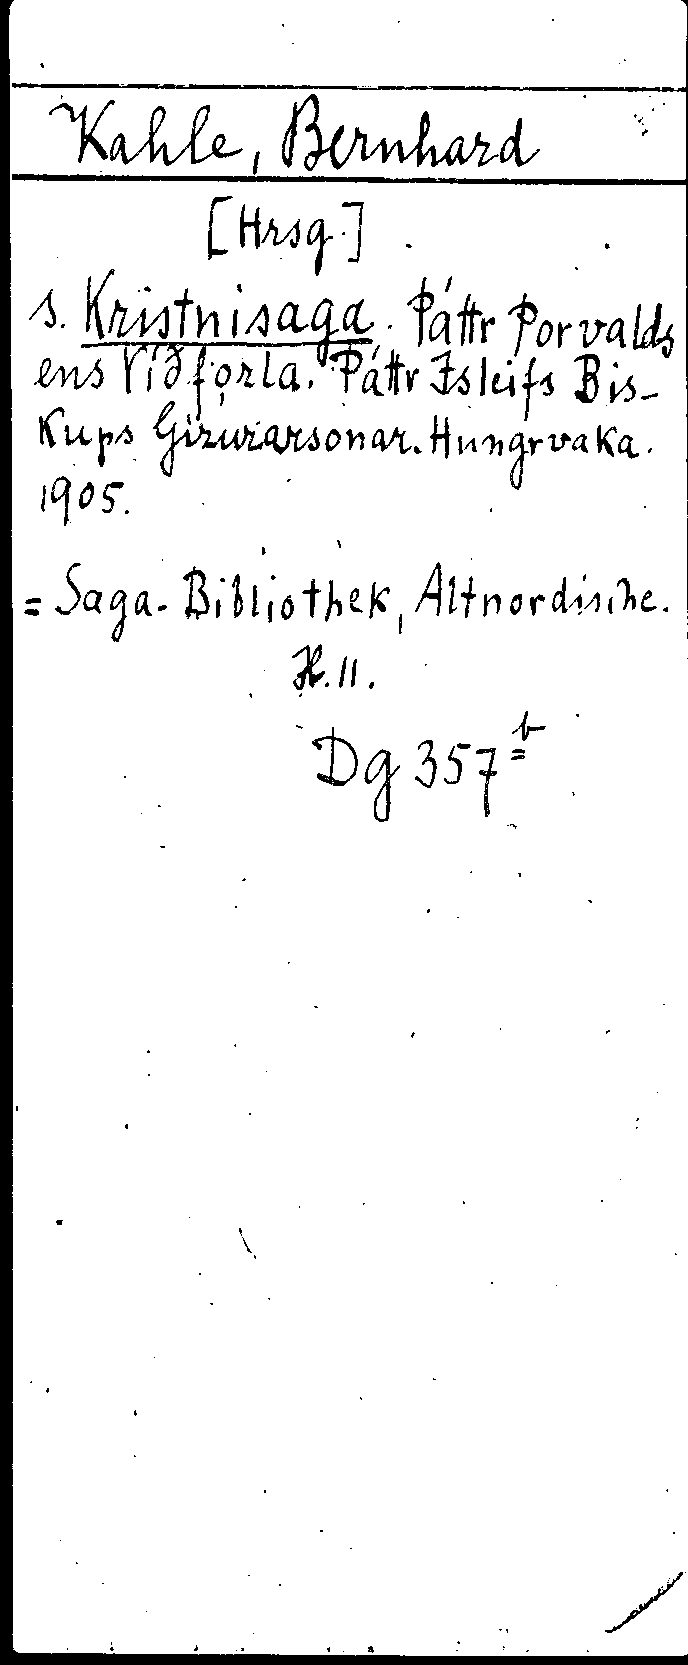 Kahle, Bernhard
[Hrsg.]
s. Kristnisaga. Þáttr Þorvalds
ens Víðfǫrla. Þáttr Isleifs Bis-
kups Gizurarsonar. Hungrvaka.
1905.
= Saga-Bibliothek, Altnordische.
H. 11.
Dg 357 b